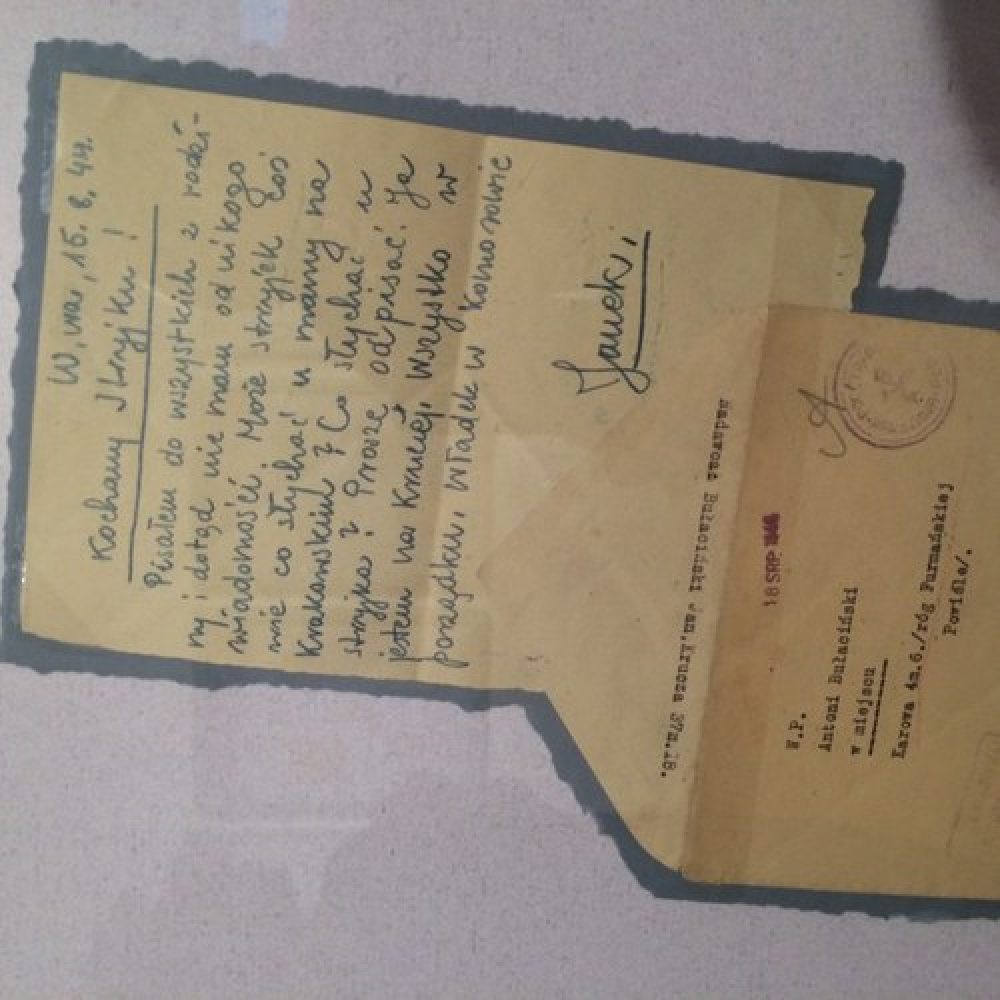 W, wa, 15. 8. 44.
Kochany Stryjku !
Pisałem do wszystkich z rodzi-
ny i dotąd nie mam od nikogo
wiadomości. Może stryjek coś
wie co słychać u mamy na
Krakowskim ? Co słychać u
stryjka ? Proszę odpisać. Ja
jestem na Kruczej, wszystko w
porządku, Władek w
Janek.
Nadawca Bułaciński Jan, Krucza 37m.18.
18 SRP 1944
W.P.
Antoni Bułaciński
w miejscu
Karowa 4m.6./róg Furmańskiej
Powiśle/.